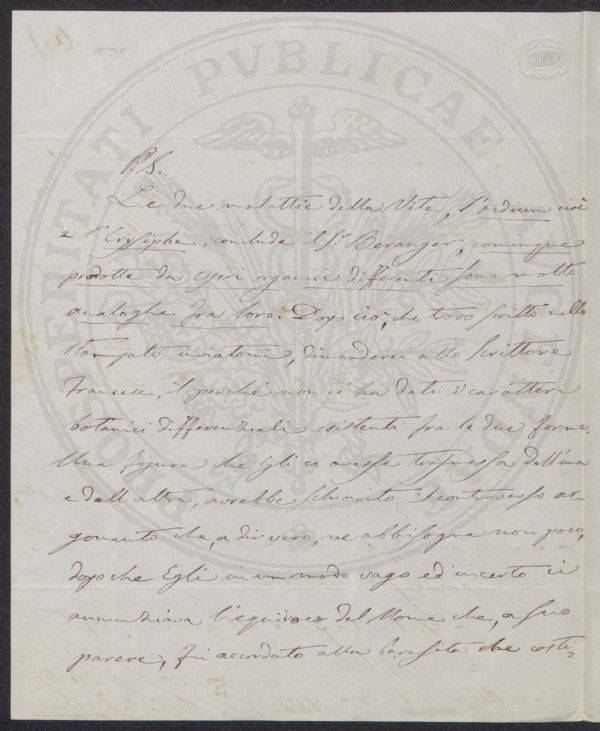 P. S.
Le due malattie della Vite, l'oidium cioè
e l'Erysiphe, conclude il Sr. Beranger, comunque
prodotte da esseri organici differenti sono molto
analoghe fra loro. Dopo ciò, che trovo scritto nello
stampato inviatomi, dimanderei allo Scrittore
Francese, il perchè non ci ha dati i caratteri
botanici differenziali esistenti fra le due forme.
Una figura che Egli ci avesse trasmessa dell'una
e dell'altra, avrebbe schiarito il controverso ar-
gomento che, a dir vero, ne abbisogna non poco,
dopo che Egli in un modo vago ed incerto ci
annunziava l'equivoco del Nome che, a suo
parere, fu accordato alla parassita che costi=
PROSPERITATI PVBLICAE